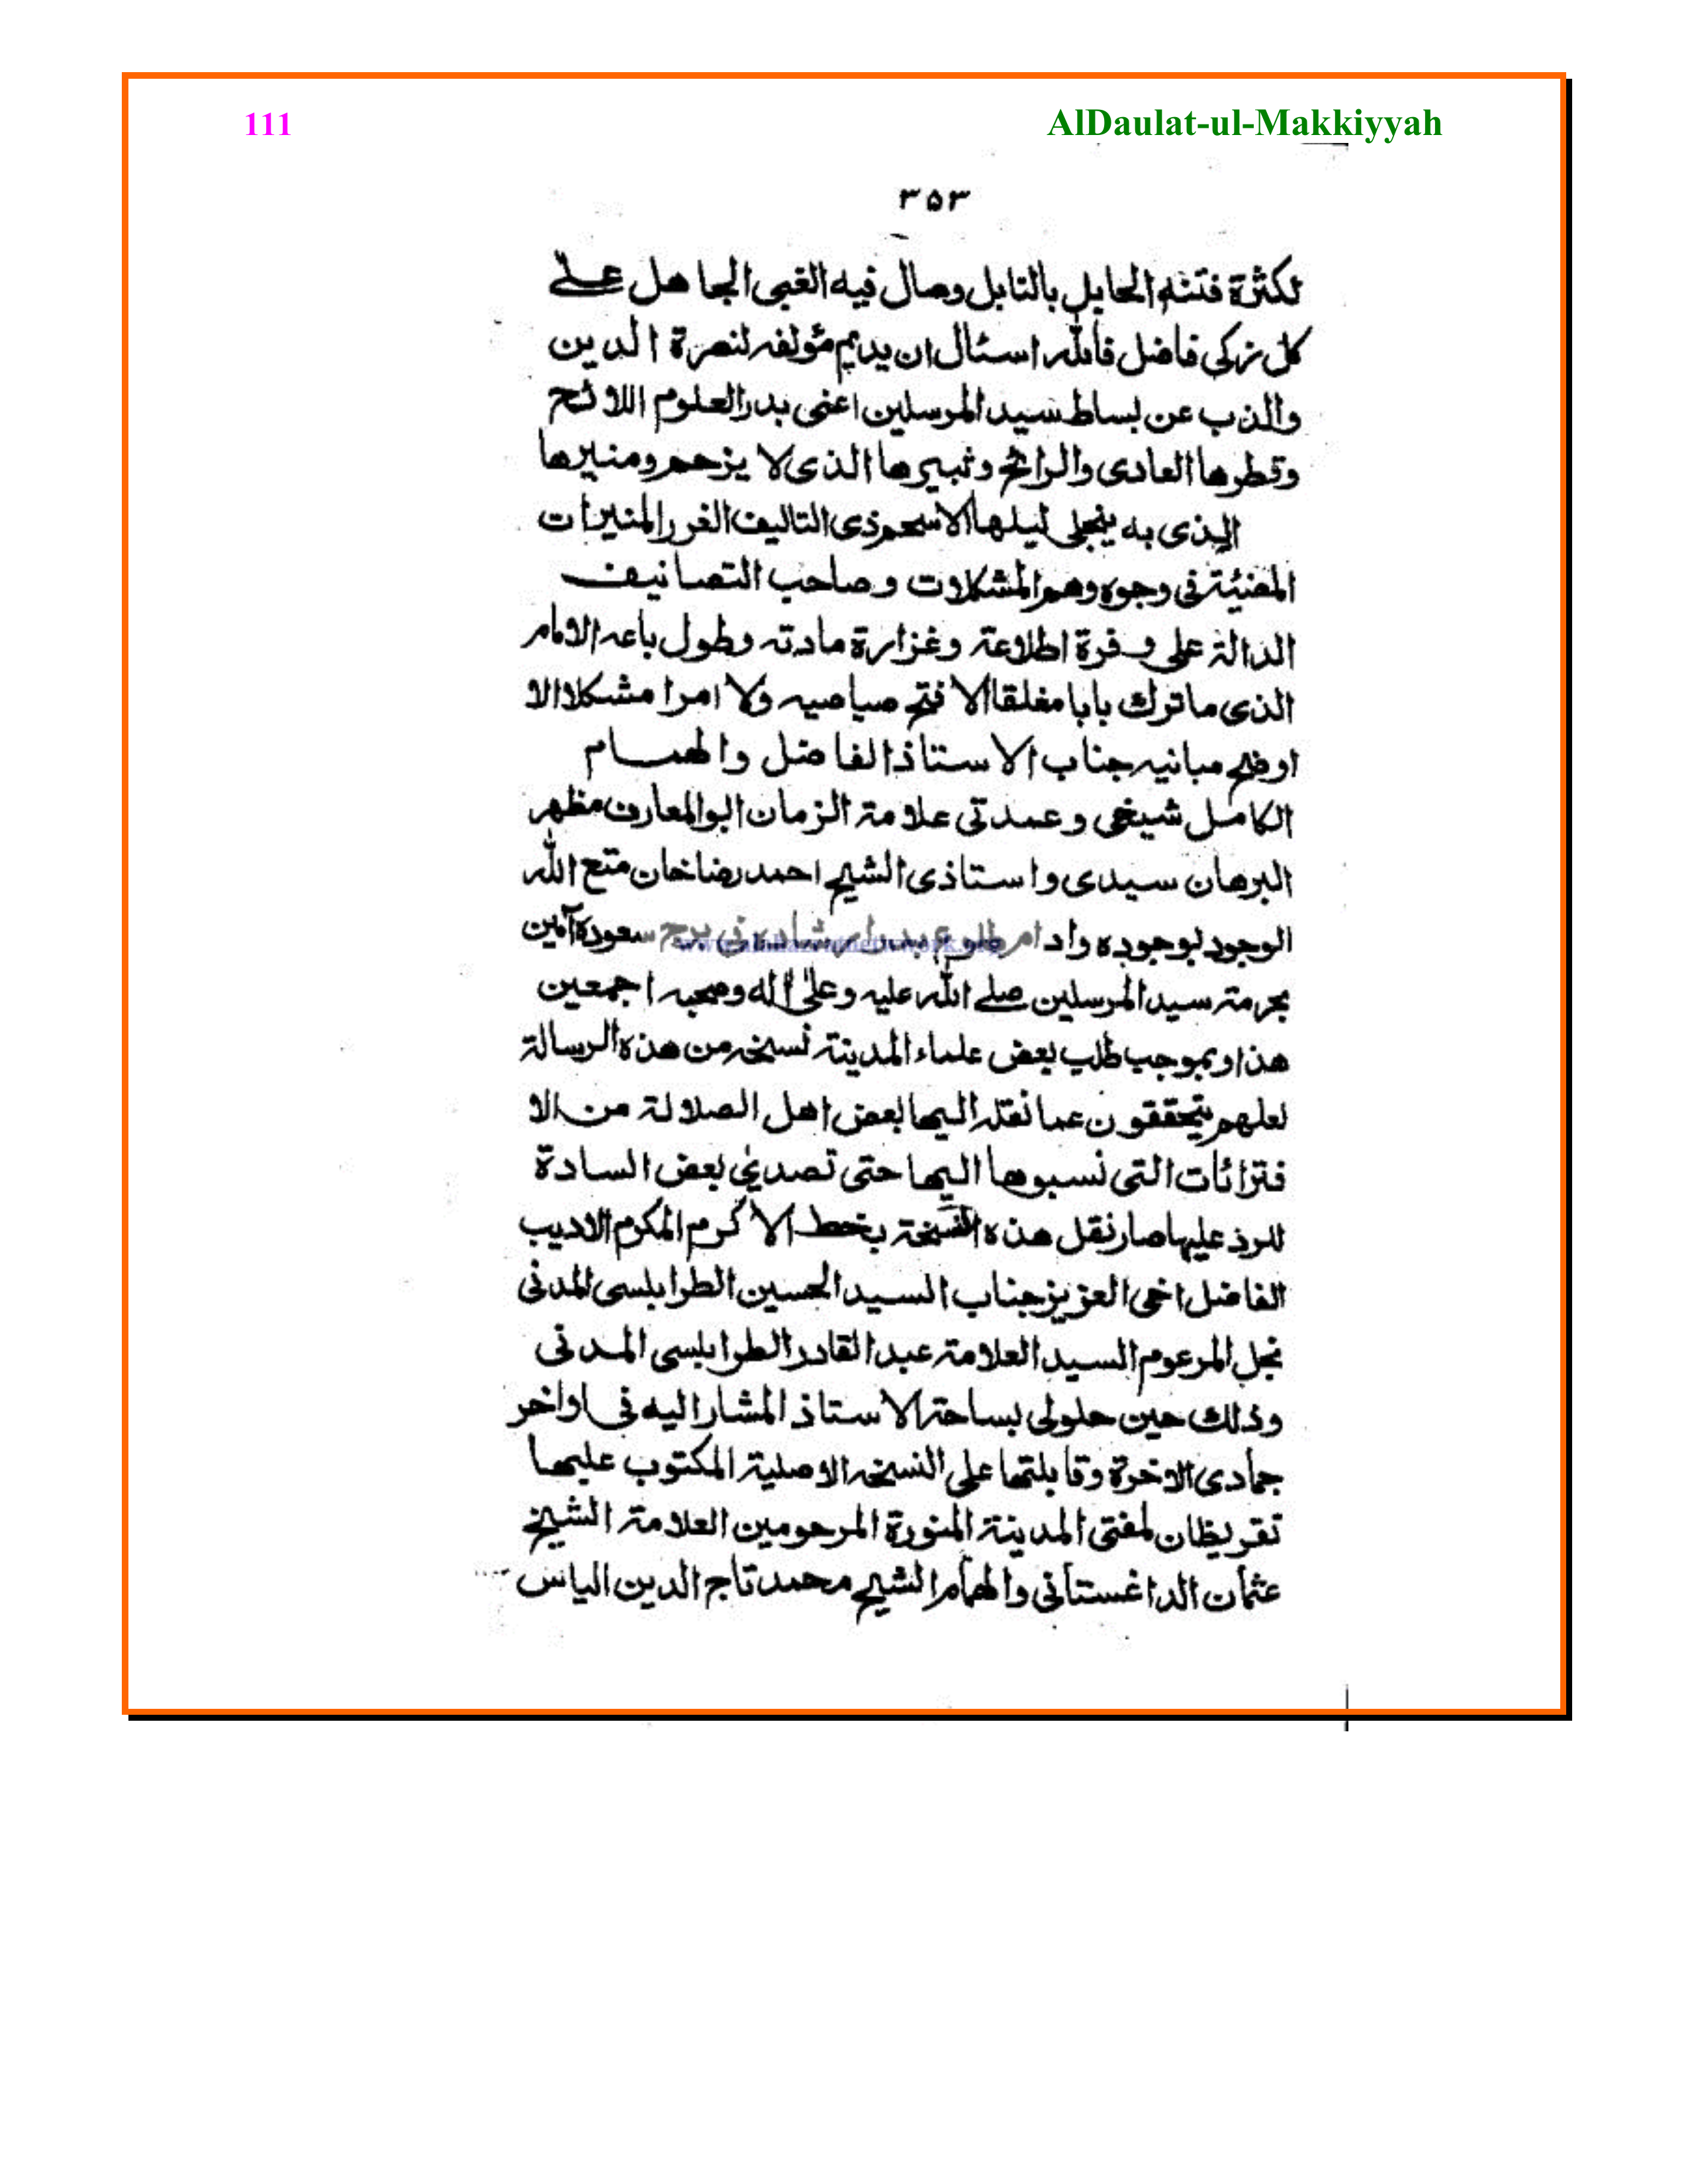 111
AlDaulat-ul-Makkiyyah
۳۵۳
لكثرة فتنه الحابل بالنابل وصال فيه الغبى الجاهل علے
كل زكى فاضل فالله اسئال ان يديم مؤلفه لنصرة الدين
والذب عن بساط سيد المرسلين اعنى بدر العلوم اللائح
وقطرها العادى والرائح وثبيرها الذى لا يزحم ومنيرها
الذى به ينجلى ليلها الاسحم ذى التاليف الغرر المنيرات
المضيئة فى وجوه وهم المشكلات وصاحب التصانيف
الدالة على وفرة اطلاعه وغزارة مادته وطول باعه الامام
الذى ما ترك بابا مغلقا الا فتح صياصيه ولا امرا مشكلا الا
اوضح مبانيه جناب الاستاذ الفاضل والهمام
الكامل شيخى وعمدتى علامة الزمان ابو المعارف مظهر
البرهان سيدى واستاذى الشيخ احمد رضا خان متع الله
الوجود بوجوده وادام طلوع بدر ارشاده فى برج سعوده آمين
بحرمة سيد المرسلين صلے الله عليه وعلى اٰله وصحبه اجمعين
هذا وبموجب طلب بعض علماء المدينة نسخه من هذه الرسالة
لعلهم يتحققون عما نقله اليها بعض اهل الضلالة من الا
فترائات التى نسبوها اليها حتى تصدىٰ بعض السادة
للرد عليها صار نقل هذه النسخة بخط الاكرم المكرم الاديب
الفاضل اخى العزيز جناب السيد الحسين الطرابلسى المدنى
نجل المرعوم السيد العلامة عبد القادر الطرابلسى المدنى
وذلك حين حلولى بساحة الاستاذ المشار اليه فى اواخر
جمادى الاخرة وقابلتها على النسخه الاصلية المكتوب عليها
تقريظان لمفتى المدينة المنورة المرحومين العلامة الشيخ
عثمان الداغستانى والهمام الشيخ محمد تاج الدين الياس